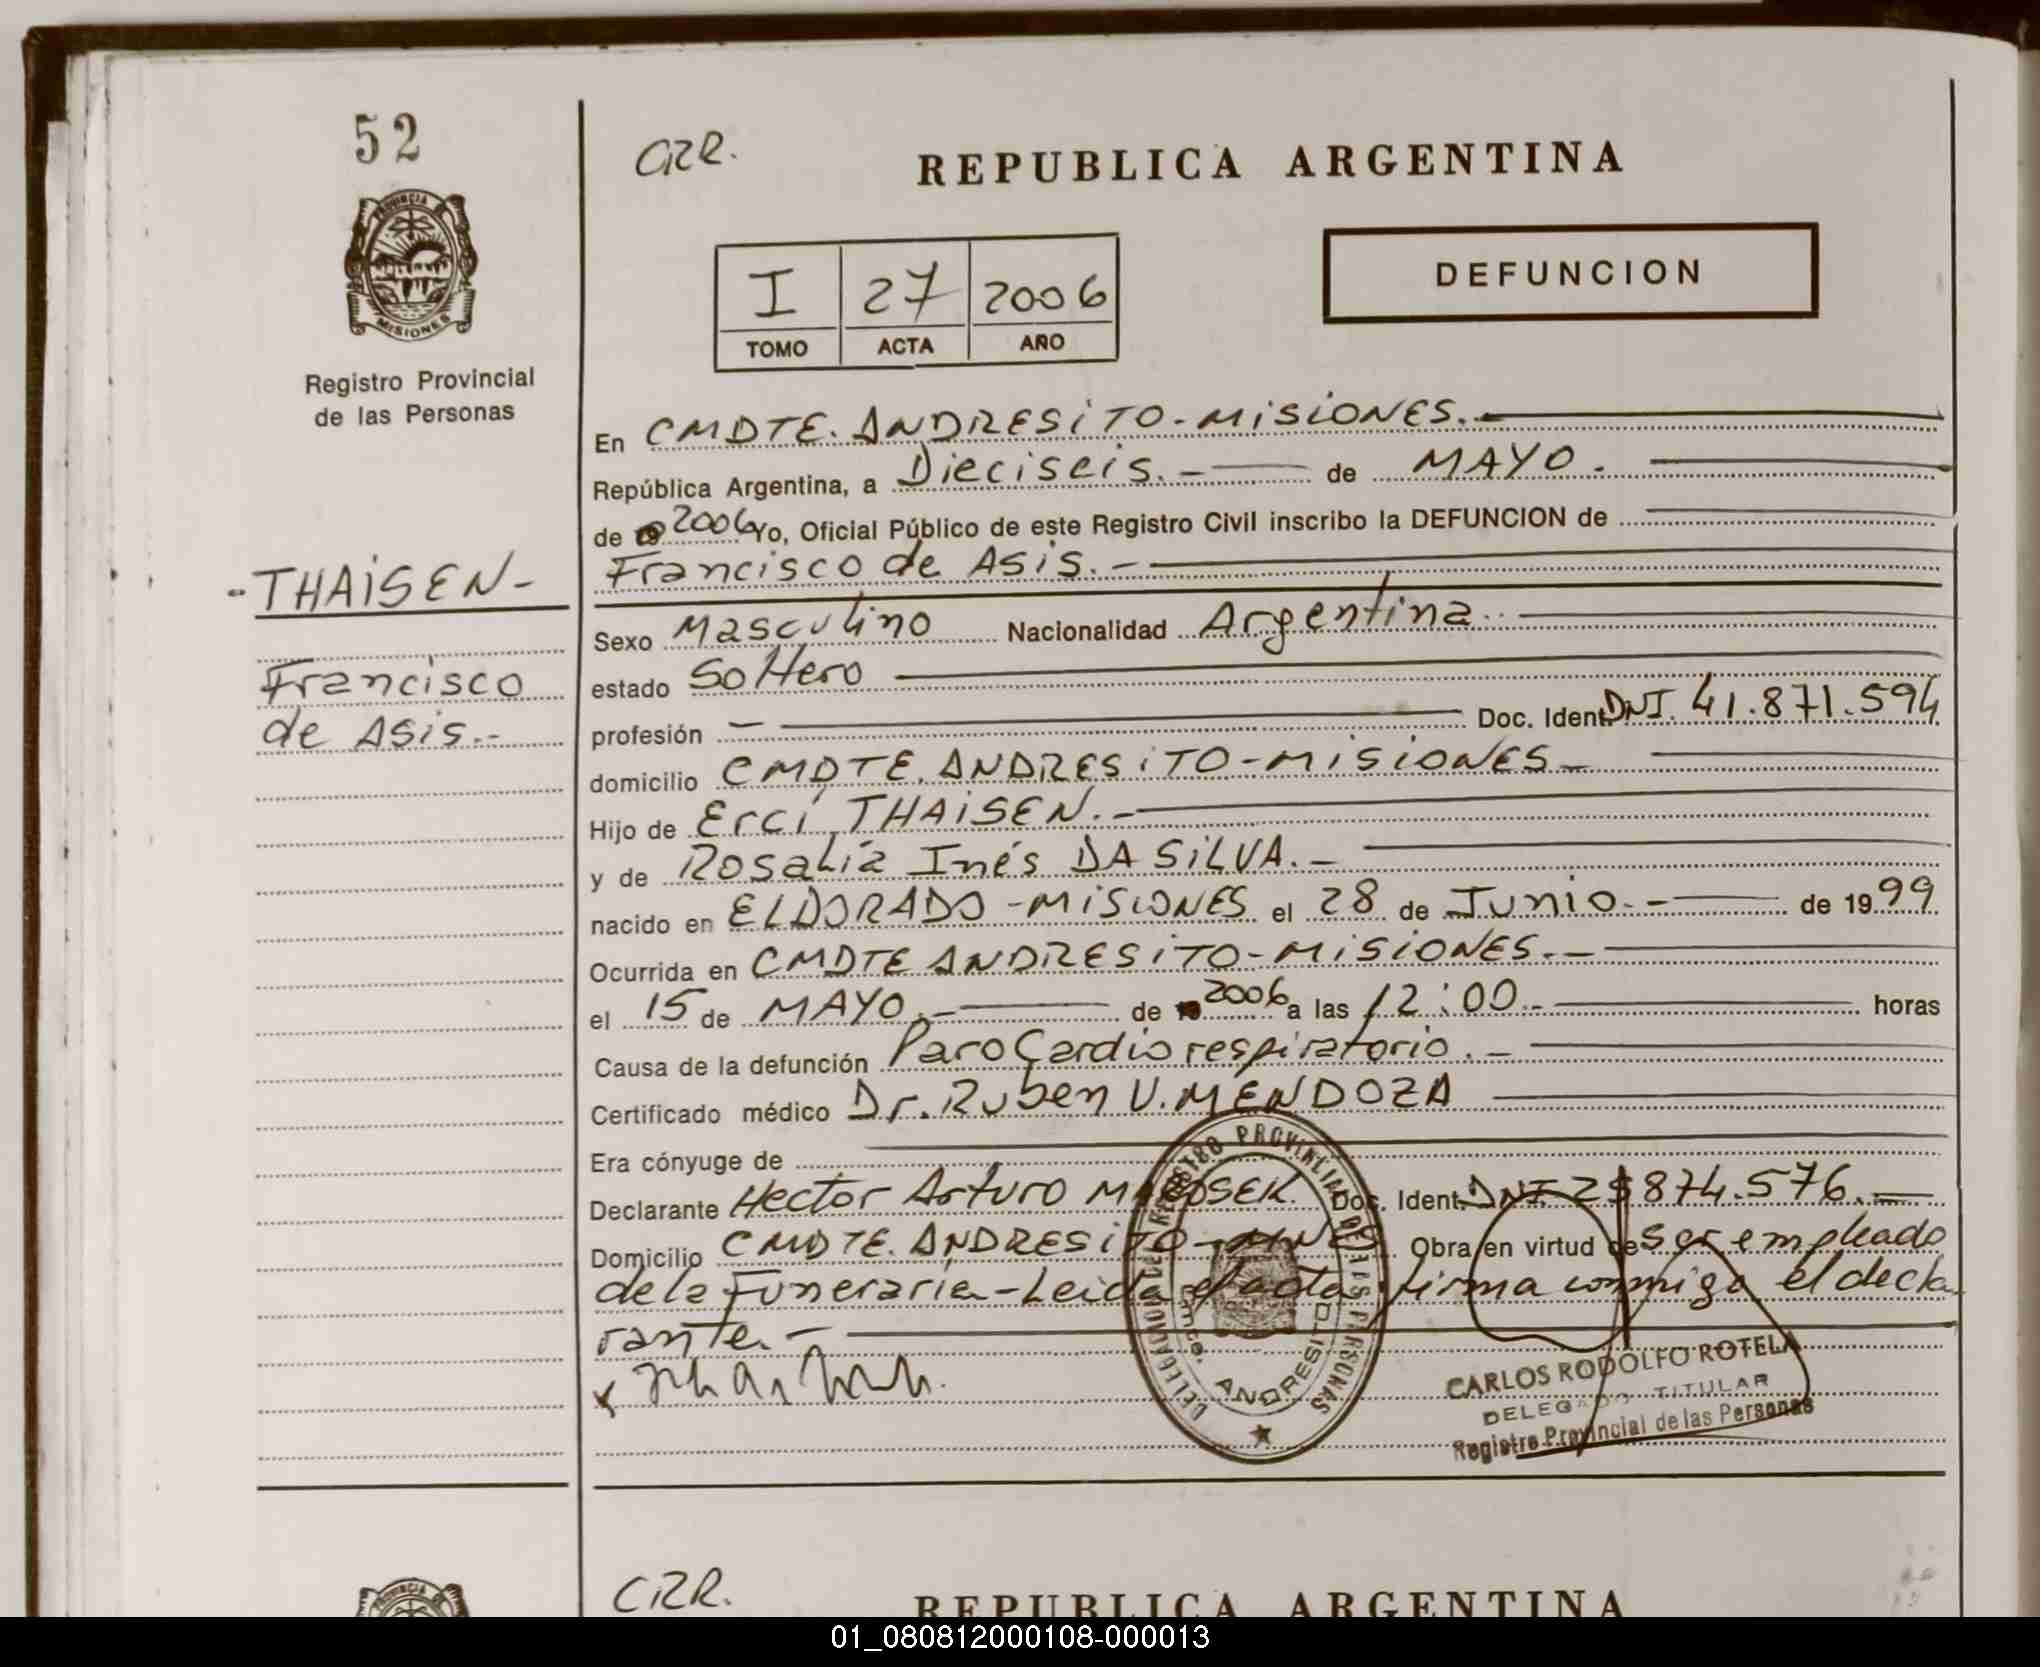 52
PROVINCIA DE
MISIONES
Registro Provincial
de las Personas
-THAISEN-
Francisco
de Asis.-
CRR.
REPUBLICA ARGENTINA
I 27 2006
TOMO ACTA AÑO
DEFUNCION
En CMDTE. ANDRESITO-MISIONES.-
República Argentina, a Dieciseis.- de MAYO.
de 2006 Yo, Oficial Público de este Registro Civil inscribo la DEFUNCION de
Francisco de Asis.-
Sexo Masculino Nacionalidad Argentina
estado Soltero
profesión - Doc. Ident. DNI. 41.871.594
domicilio CMDTE. ANDRESITO-MISIONES-
Hijo de Erci THAISEN.-
y de Rosalía Inés DA SILVA.-
nacido en ELDORADO-MISIONES el 28 de Junio.- de 1999
Ocurrida en CMDTE ANDRESITO-MISIONES.-
el 15 de MAYO.- de 2006 a las 12:00.- horas
Causa de la defunción Paro Cardio respiratorio.-
Certificado médico Dr. Ruben V. MENDOZA
Era cónyuge de
Declarante Hector Arturo Doc. Ident. DNI 874.576.-
Domicilio CMDTE. ANDRESITO- Obra en virtud de ser empleado
de la Funeraria-Leida el acta firma conmigo el decla
rante.-
DELEGACION DEL REGISTRO PROVINCIAL DE LAS PERSONAS
Cmte. ANDRESITO
CARLOS RODOLFO ROTELA
DELEGADO TITULAR
Registro Provincial de las Personas
CRR.
REPUBLICA ARGENTINA
01_080812000108-000013